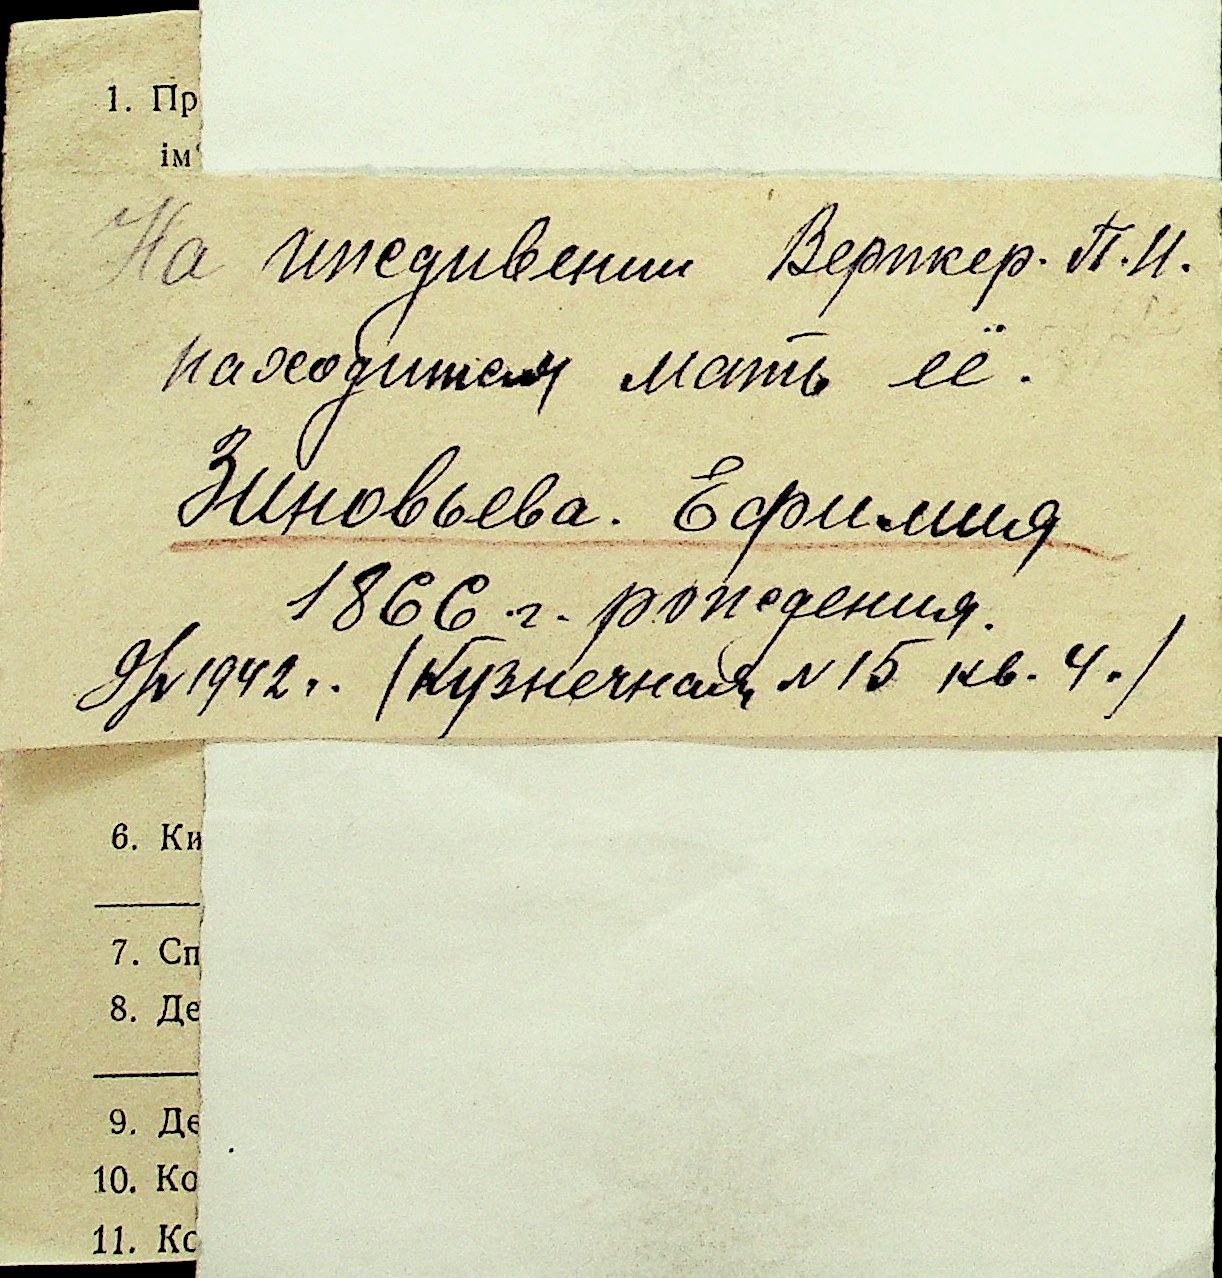 1. Пр
ім'
На иждивении Верпкер. П.И.
находится мать её.
Зиновьева. Ефимия
1866 г. рождения.
9/IV 1942 г. (Кузнечная, № 15 кв. 4.)
6. Ки
7. Сп
8. Де
9. Де
10. Ко
11. Ко